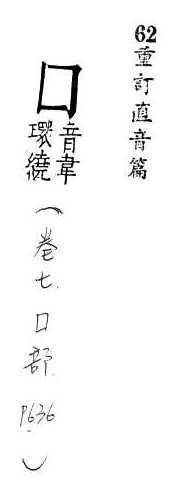 62重訂直音篇
囗
音韋
環繞
(卷七.囗部.P636.)